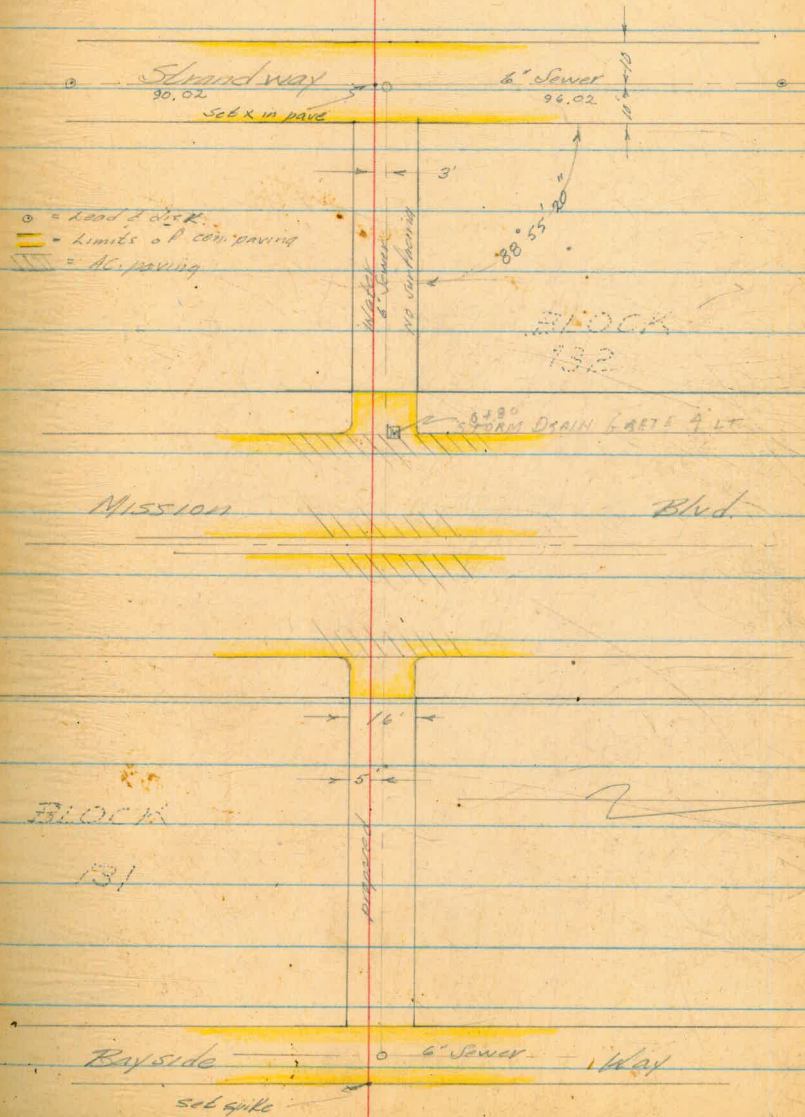 Strandway
90.02
6" Sewer
96.02
10' 10'
Set x in pave
3'
88° 55' 20"
⊙ = Lead & disk
= Limits of con. paving
= A.C. paving
Water
6" Sewer
No Surfacing
BLOCK
132
STORM DRAIN GRATE 9 LT
Mission Blvd.
16'
5'
BLOCK
131
proposed
Bayside 6" Sewer Way
Set spike